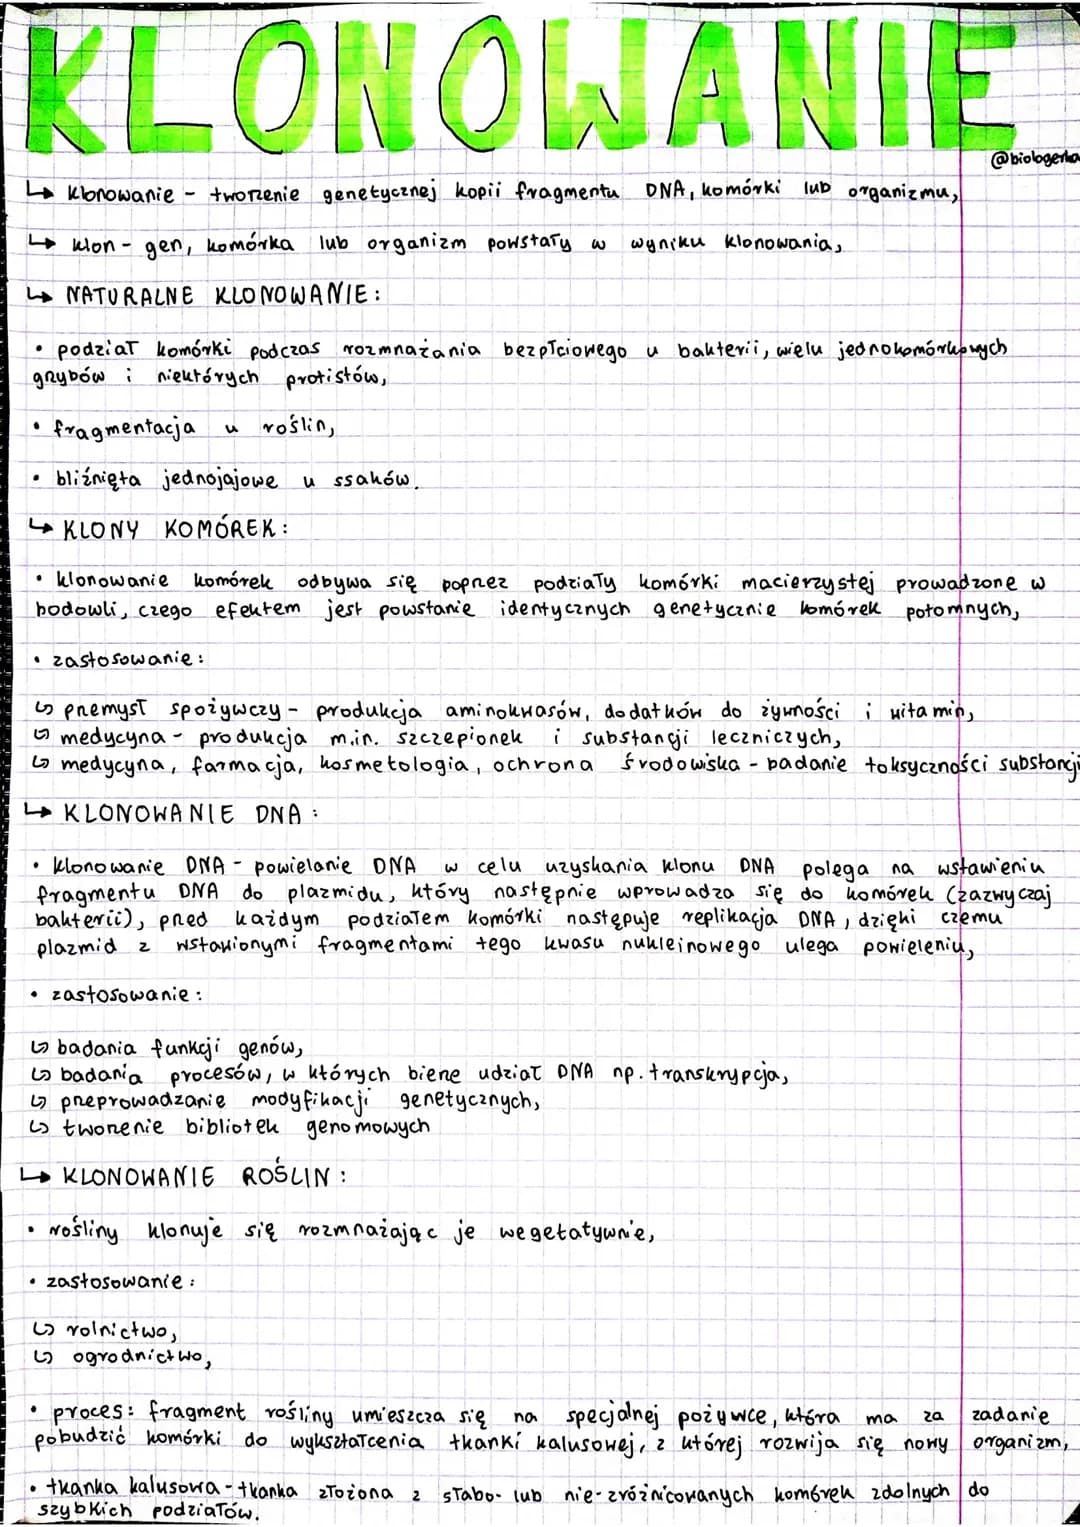 KLONOWANIE
@biologerka
↳ klonowanie - tworzenie genetycznej kopii fragmentu DNA, komórki lub organizmu,
↳ klon - gen, komórka lub organizm powstały w wyniku klonowania,
↳ NATURALNE KLONOWANIE:
• podział komórki podczas rozmnażania bezpłciowego u bakterii, wielu jednokomórkowych
grzybów i niektórych protistów,
• fragmentacja u roślin,
• bliźnięta jednojajowe u ssaków.
↳ KLONY KOMÓREK:
• klonowanie komórek odbywa się poprzez podziały komórki macierzystej prowadzone w
hodowli, czego efektem jest powstanie identycznych genetycznie komórek potomnych,
• zastosowanie:
↳ przemysł spożywczy - produkcja aminokwasów, dodatków do żywności i witamin,
↳ medycyna - produkcja m.in. szczepionek i substancji leczniczych,
↳ medycyna, farmacja, kosmetologia, ochrona środowiska - badanie toksyczności substancji
↳ KLONOWANIE DNA:
• klonowanie DNA - powielanie DNA w celu uzyskania klonu DNA polega na wstawieniu
fragmentu DNA do plazmidu, który następnie wprowadza się do komórek (zazwyczaj
bakterii), przed każdym podziałem komórki następuje replikacja DNA, dzięki czemu
plazmid z wstawionymi fragmentami tego kwasu nukleinowego ulega powieleniu,
• zastosowanie:
↳ badania funkcji genów,
↳ badania procesów, w których bierze udział DNA np. transkrypcja,
↳ przeprowadzanie modyfikacji genetycznych,
↳ tworzenie bibliotek genomowych
↳ KLONOWANIE ROŚLIN:
• rośliny klonuje się rozmnażając je wegetatywnie,
• zastosowanie:
↳ rolnictwo,
↳ ogrodnictwo,
• proces: fragment rośliny umieszcza się na specjalnej pożywce, która ma za zadanie
pobudzić komórki do wykształcenia tkanki kalusowej, z której rozwija się nowy organizm,
• tkanka kalusowa - tkanka złożona z słabo- lub nie-zróżnicowanych komórek zdolnych do
szybkich podziałów.